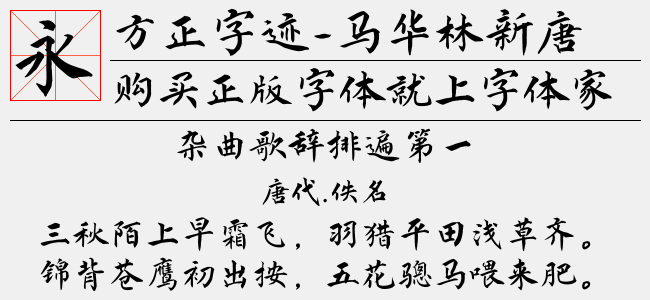 永
方正字迹-马华林新唐
购买正版字体就上字体家
杂曲歌辞排遍第一
唐代.佚名
三秋陌上早霜飞，羽猎平田浅草齐。
锦背苍鹰初出按，五花骢马喂来肥。